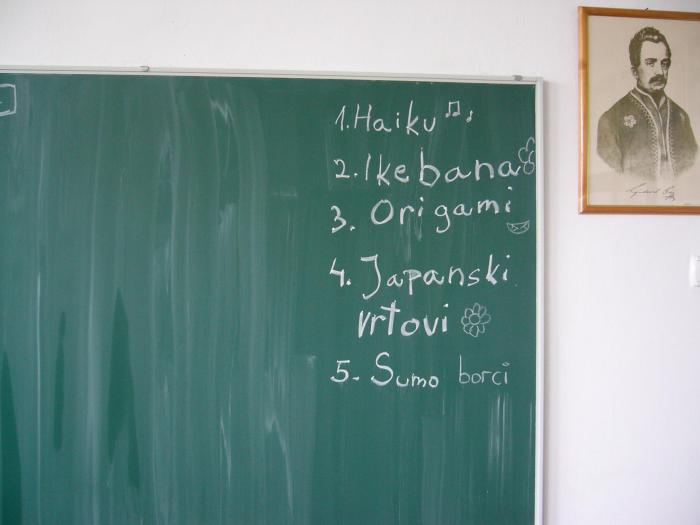 1. Haiku
2. Ikebana
3. Origami
4. Japanski
vrtovi
5. Sumo borci